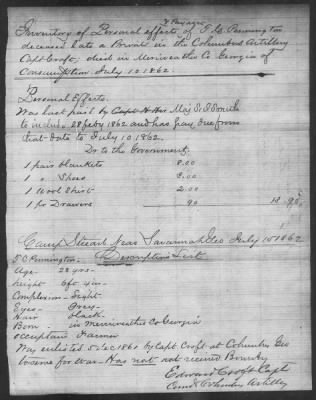 & Pay age
Inventory of Personal effects of T. C. Pennington
deceased late a Private in the Columbus Artillery
Capt Croft, died in Meriweather Co Georgia of
Consumption July 10 1862.
Personal Effects.
Was last paid by Maj
to inclu. 28 feby 1862 and has pay due from
that date to July 10 1862.
Dr to the Government,
1 pair blankets 8.00
1 " Shoes 3.00
1 Wool Shirt 2.00
1 pr Drawers 90 13 90
Camp Stuart Near Savannah Geo July 15 1862
T. C. Pennington. Descriptive List
Age 28 yrs.
height 6 ft 4 in.
Complexion Light
Eyes Grey
Hair black.
Born in Meriweather Co Georgia
occupation Farmer
Was enlisted 5 Dec 1861 by Capt Croft at Columbus Geo
to serve for War. Has not recived Bounty
Edward Croft Capt
Comd Columbus Artillery